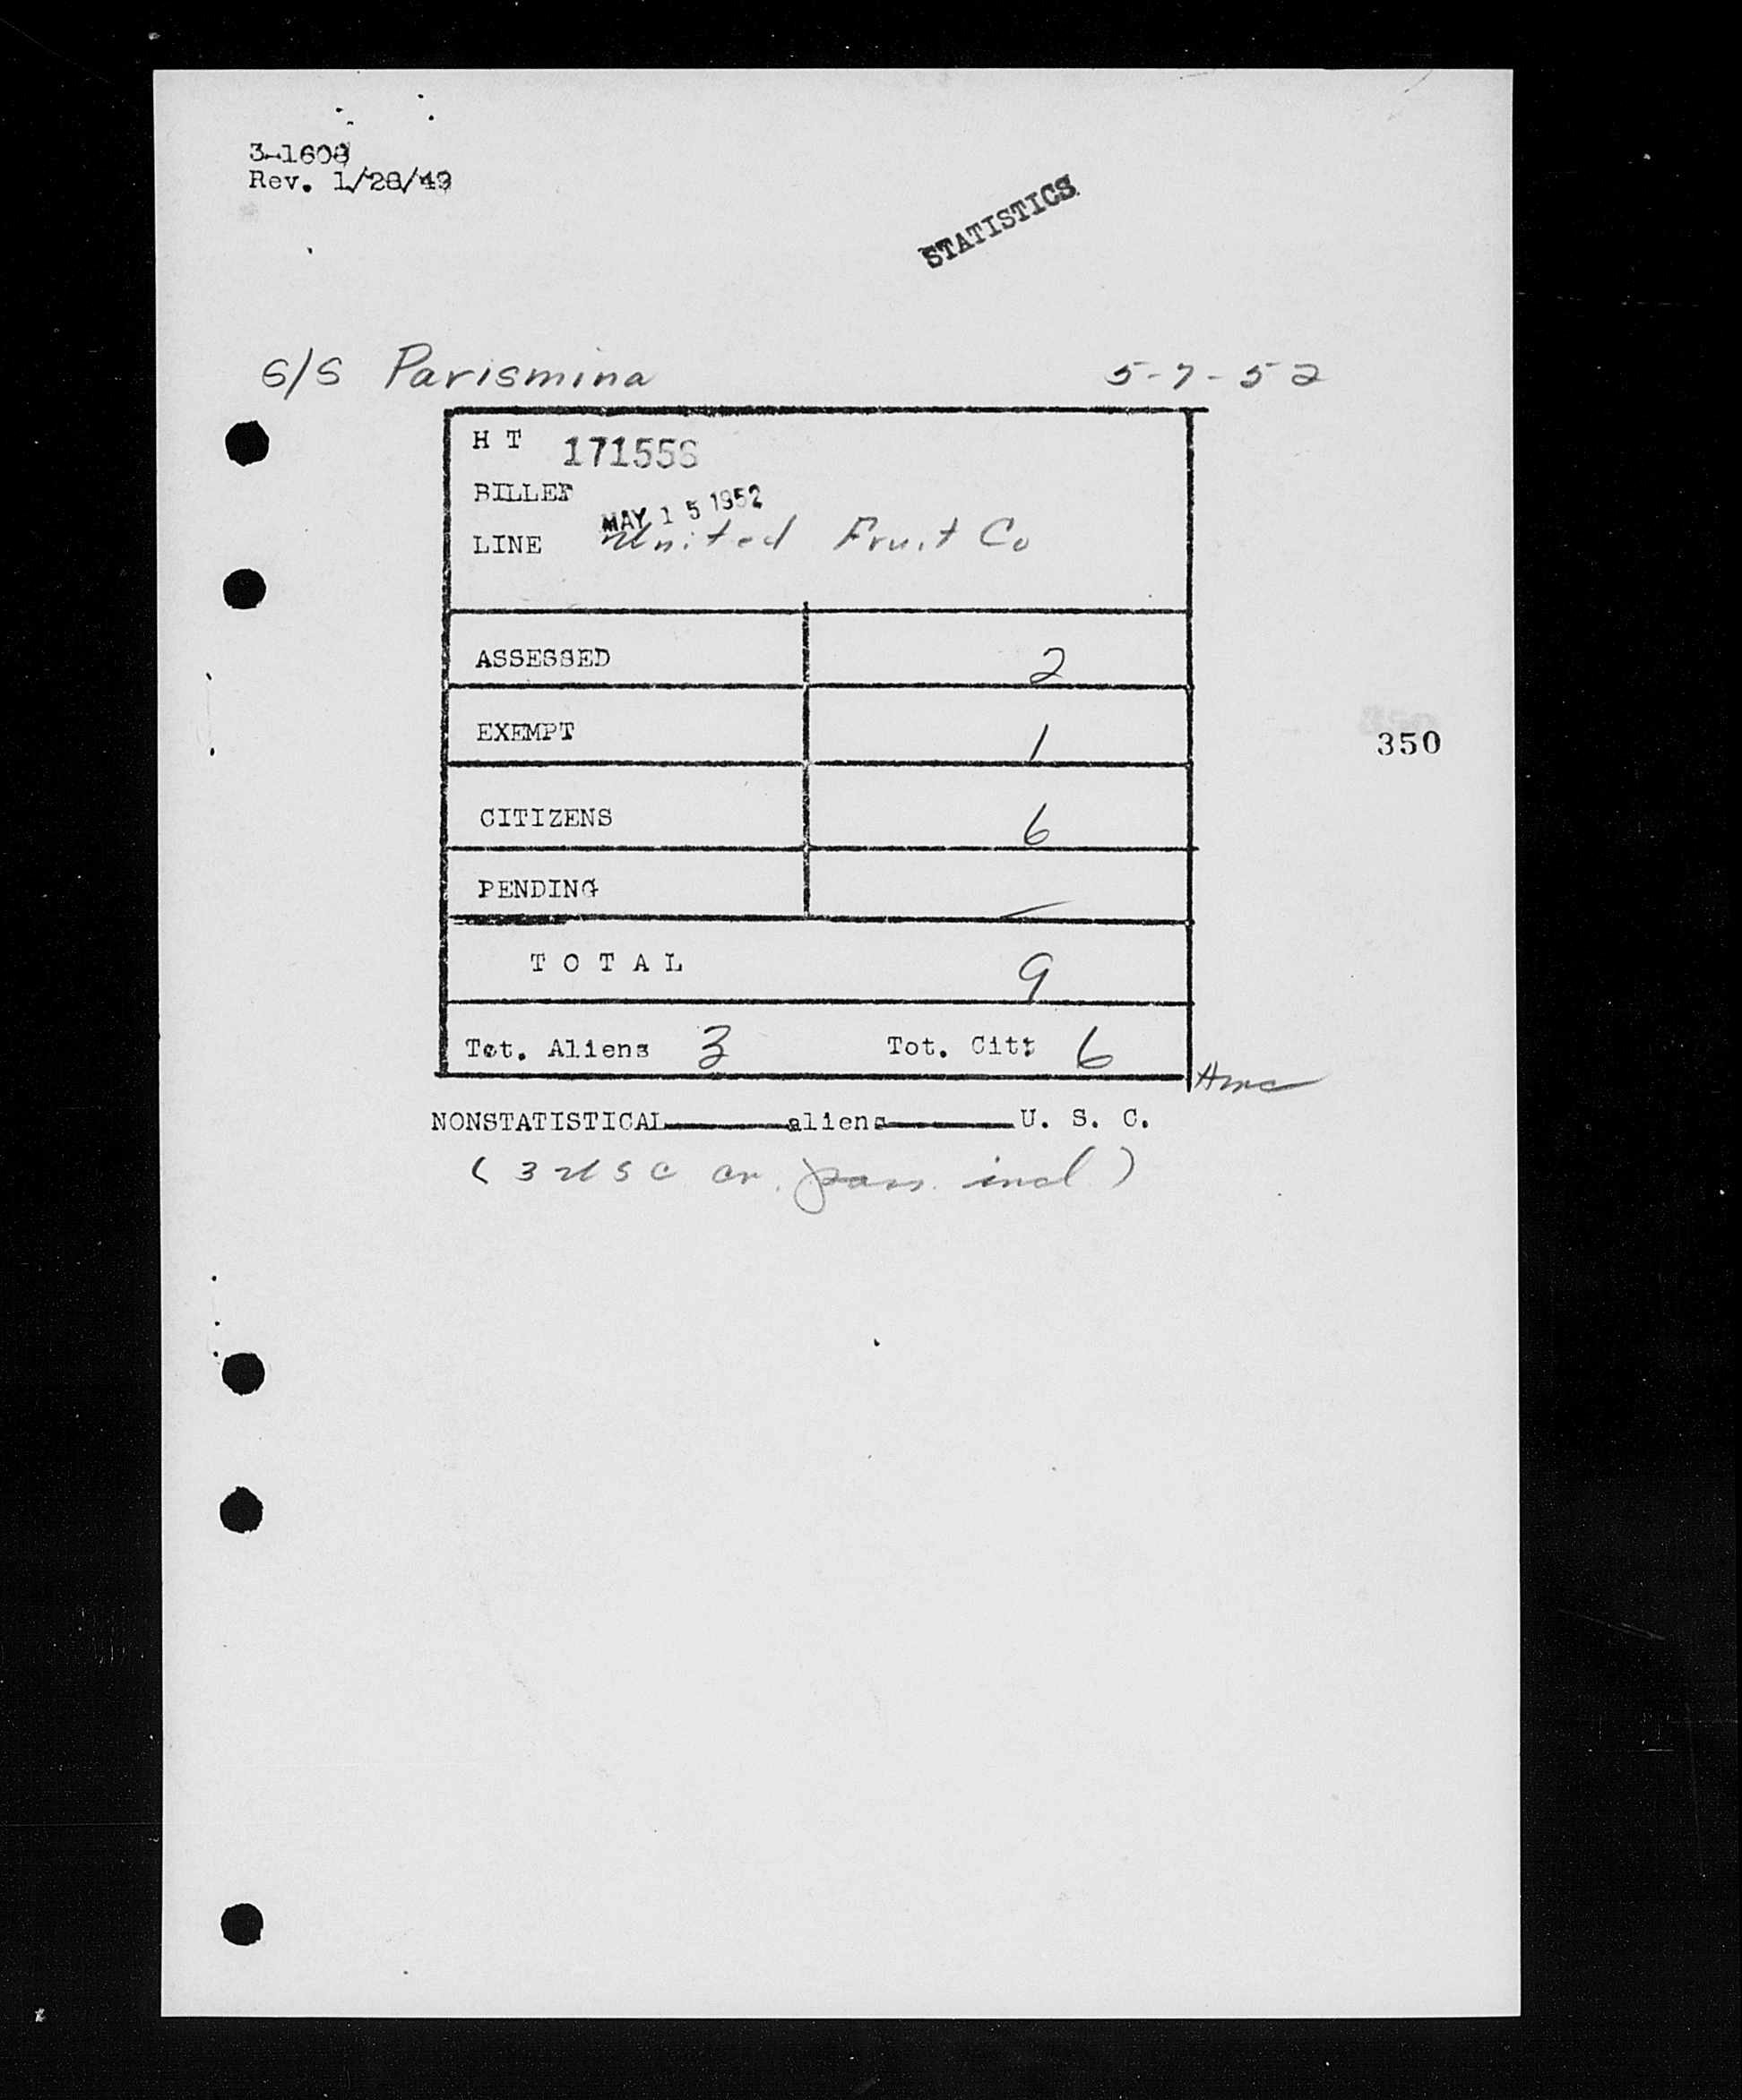 3-1608
Rev. 1/28/49
STATISTICS
S/S Parismina 5-7-52
H T 171556
BILLED
MAY 15 1952
LINE United Fruit Co
ASSESSED 2
EXEMPT 1
350
CITIZENS 6
PENDING —
T O T A L 9
Tot. Aliens 3 Tot. Cit: 6
NONSTATISTICAL aliens U. S. C.
( 3 USC cr. pass. incl )